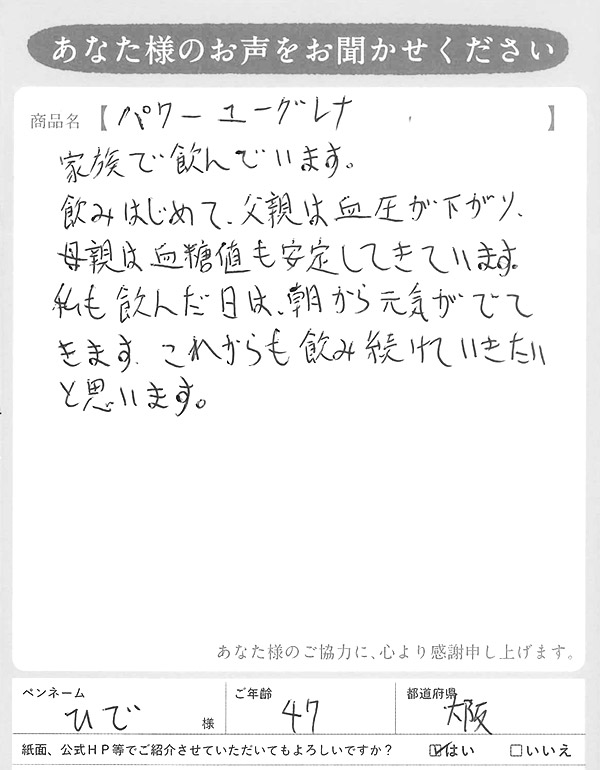 あなた様のお声をお聞かせください
商品名【パワーユーグレナ】
家族で飲んでいます。
飲みはじめて、父親は血圧が下がり、
母親は血糖値も安定してきています。
私も飲んだ日は、朝から元気がでて
きます。これからも飲み続けていきたい
と思います。
あなた様のご協力に、心より感謝申し上げます。
ペンネーム ひで 様 ご年齢 47 都道府県 大阪
紙面、公式HP等でご紹介させていただいてもよろしいですか? ☑はい □いいえ